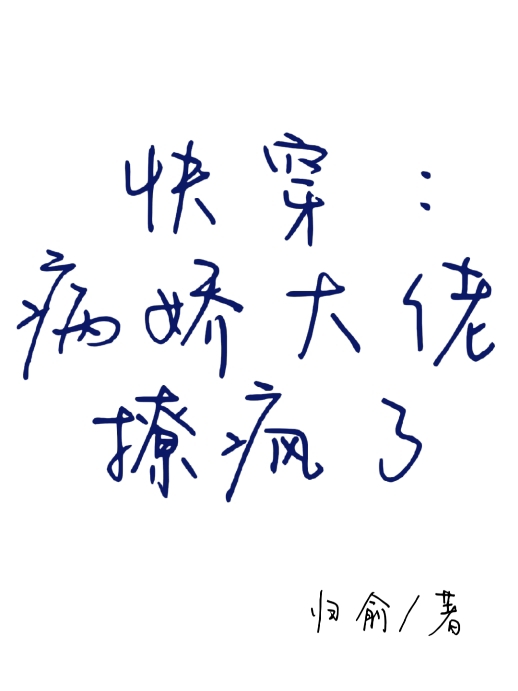 快穿：
病娇大佬
撩疯了
归俞/著